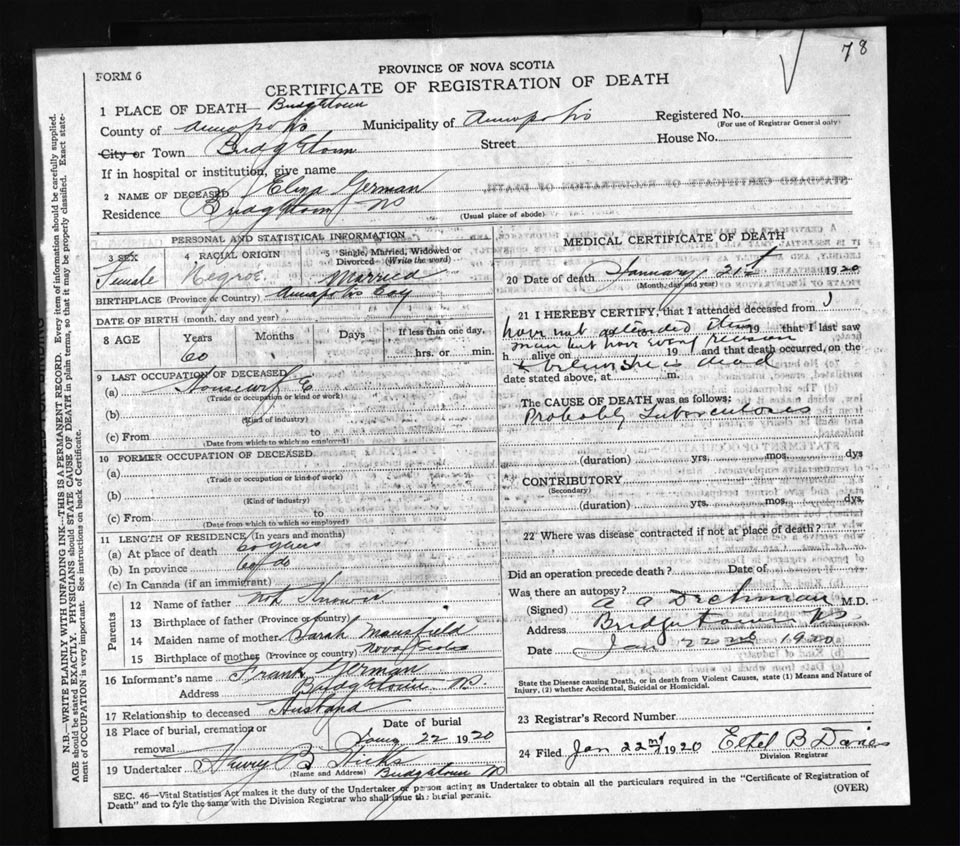 78
FORM 6
PROVINCE OF NOVA SCOTIA
CERTIFICATE OF REGISTRATION OF DEATH
1 PLACE OF DEATH— Bridgetown
County of Annapolis Municipality of Annapolis Registered No.
(For use of Registrar General only)
City or Town Bridgetown Street House No.
If in hospital or institution, give name
2 NAME OF DECEASED Eliza German
Residence Bridgetown NS
(Usual place of abode)
PERSONAL AND STATISTICAL INFORMATION
3 SEX 4 RACIAL ORIGIN 5 Single, Married, Widowed or Divorced (Write the word)
Female Negroe Married
BIRTHPLACE (Province or Country) Annapolis Coy
DATE OF BIRTH (month, day and year)
8 AGE Years Months Days If less than one day,
60 hrs. or min.
9 LAST OCCUPATION OF DECEASED
(a) Housewife
(Trade or occupation or kind of work)
(b)
(Kind of industry)
(c) From to
(Date from which to which so employed)
10 FORMER OCCUPATION OF DECEASED.
(a)
(Trade or occupation or kind of work)
(b)
(Kind of industry)
(c) From to
(Date from which to which so employed)
11 LENGTH OF RESIDENCE (In years and months)
(a) At place of death 60 years
(b) In province 60 do
(c) In Canada (if an immigrant)
Parents
12 Name of father not Known
13 Birthplace of father (Province or Country)
14 Maiden name of mother Sarah Mansfield
15 Birthplace of mother (Province or country) Nova Scotia
16 Informant's name Frank German
Address Bridgetown NS.
17 Relationship to deceased Husband
18 Place of burial, cremation or removal Date of burial
22 1920
19 Undertaker Harry B Hicks
(Name and Address) Bridgetown NS
MEDICAL CERTIFICATE OF DEATH
20 Date of death January 21st 1920
(Month, day and year)
21 I HEREBY CERTIFY, that I attended deceased from
have not attended 19 that I last saw
h alive on 19 and that death occurred, on the
she is dead
date stated above, at m.
The CAUSE OF DEATH was as follows:
Probably Tuberculosis
(duration) yrs. mos. dys
CONTRIBUTORY
(Secondary)
(duration) yrs. mos. dys.
22 Where was disease contracted if not at place of death?
Did an operation precede death? Date of
Was there an autopsy?
(Signed) A A Dechman M.D.
Address Bridgetown NS
Date Jan 22nd 1920
State the Disease causing Death, or in death from Violent Causes, state (1) Means and Nature of
Injury, (2) whether Accidental, Suicidal or Homicidal.
23 Registrar's Record Number
24 Filed Jan 22nd 1920 Ethel B Davies
Division Registrar
SEC. 46—Vital Statistics Act makes it the duty of the Undertaker or person acting as Undertaker to obtain all the particulars required in the "Certificate of Registration of
Death" and to fyle the same with the Division Registrar who shall issue the burial permit.
(OVER)
N.B.—WRITE PLAINLY WITH UNFADING INK—THIS IS A PERMANENT RECORD. Every item of information should be carefully supplied.
AGE should be stated EXACTLY. PHYSICIANS should STATE CAUSE OF DEATH in plain terms, so that it may be properly classified. Exact state-
ment of OCCUPATION is very important. See instructions on back of Certificate.